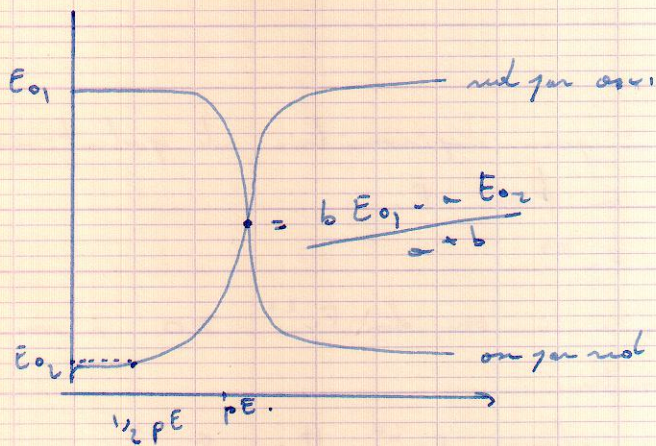 E₀₁
red par oxy.
= b E₀₁ - a E₀₂
a + b
E₀₂
ox par red
1/2 pE
pE.